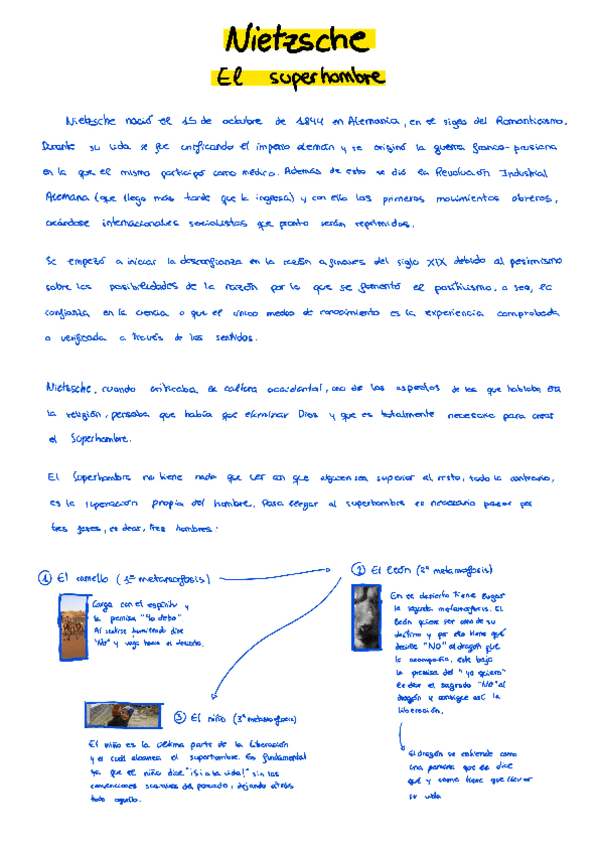 Nietzsche
El superhombre
Nietzsche nació el 15 de octubre de 1844 en Alemania, en el siglo del Romanticismo.
Durante su vida se fue unificando el imperio alemán y se originó la guerra franco-prusiana
en la que el mismo participó como médico. Además de esto se dió la Revolución Industrial
Alemana (que llego más tarde que la inglesa) y con ello los primeros movimientos obreros,
creándose internacionales socialistas que pronto serán reprimidos.
Se empezó a iniciar la desconfianza en la razón a finales del siglo XIX debido al pesimismo
sobre las posibilidades de la razón por lo que se fomentó el positivismo, o sea, la
confianza en la ciencia o que el único medio de conocimiento es la experiencia comprobada
o verificada a través de los sentidos.
Nietzsche, cuando criticaba la cultura occidental, uno de los aspectos de los que hablaba era
la religión, pensaba que había que eliminar Dios y que es totalmente necesario para crear
el Superhombre.
El Superhombre no tiene nada que ver con que alguien sea superior al resto, todo lo contrario,
es la superación propia del hombre. Para llegar al superhombre es necesario pasar por
tres fases, es decir, tres hombres:
1 El camello (1ª metamorfosis)
Carga con el espíritu y
la premisa "Yo debo"
Al sentirse humillado dice
"No" y viaja hacia el desierto.
2 El León (2ª metamorfosis)
En el desierto tiene lugar
la segunda metamorfosis. El
León quiere ser amo de su
destino y por ello tiene que
decirle "NO" al dragón que
lo acompaña, este bajo
la premisa del "yo quiero"
le dice el sagrado "No" al
dragón y consigue así la
liberación.
El dragón se entiende como
una persona que le dice
qué y como tiene que llevar
su vida
3 El niño (3ª metamorfosis)
El niño es la última parte de la liberación
y el cuál alcanza el superhombre. Es fundamental
ya que el niño dice "¡Sí a la vida!" sin las
convenciones sociales del pasado, dejando atrás
todo aquello.